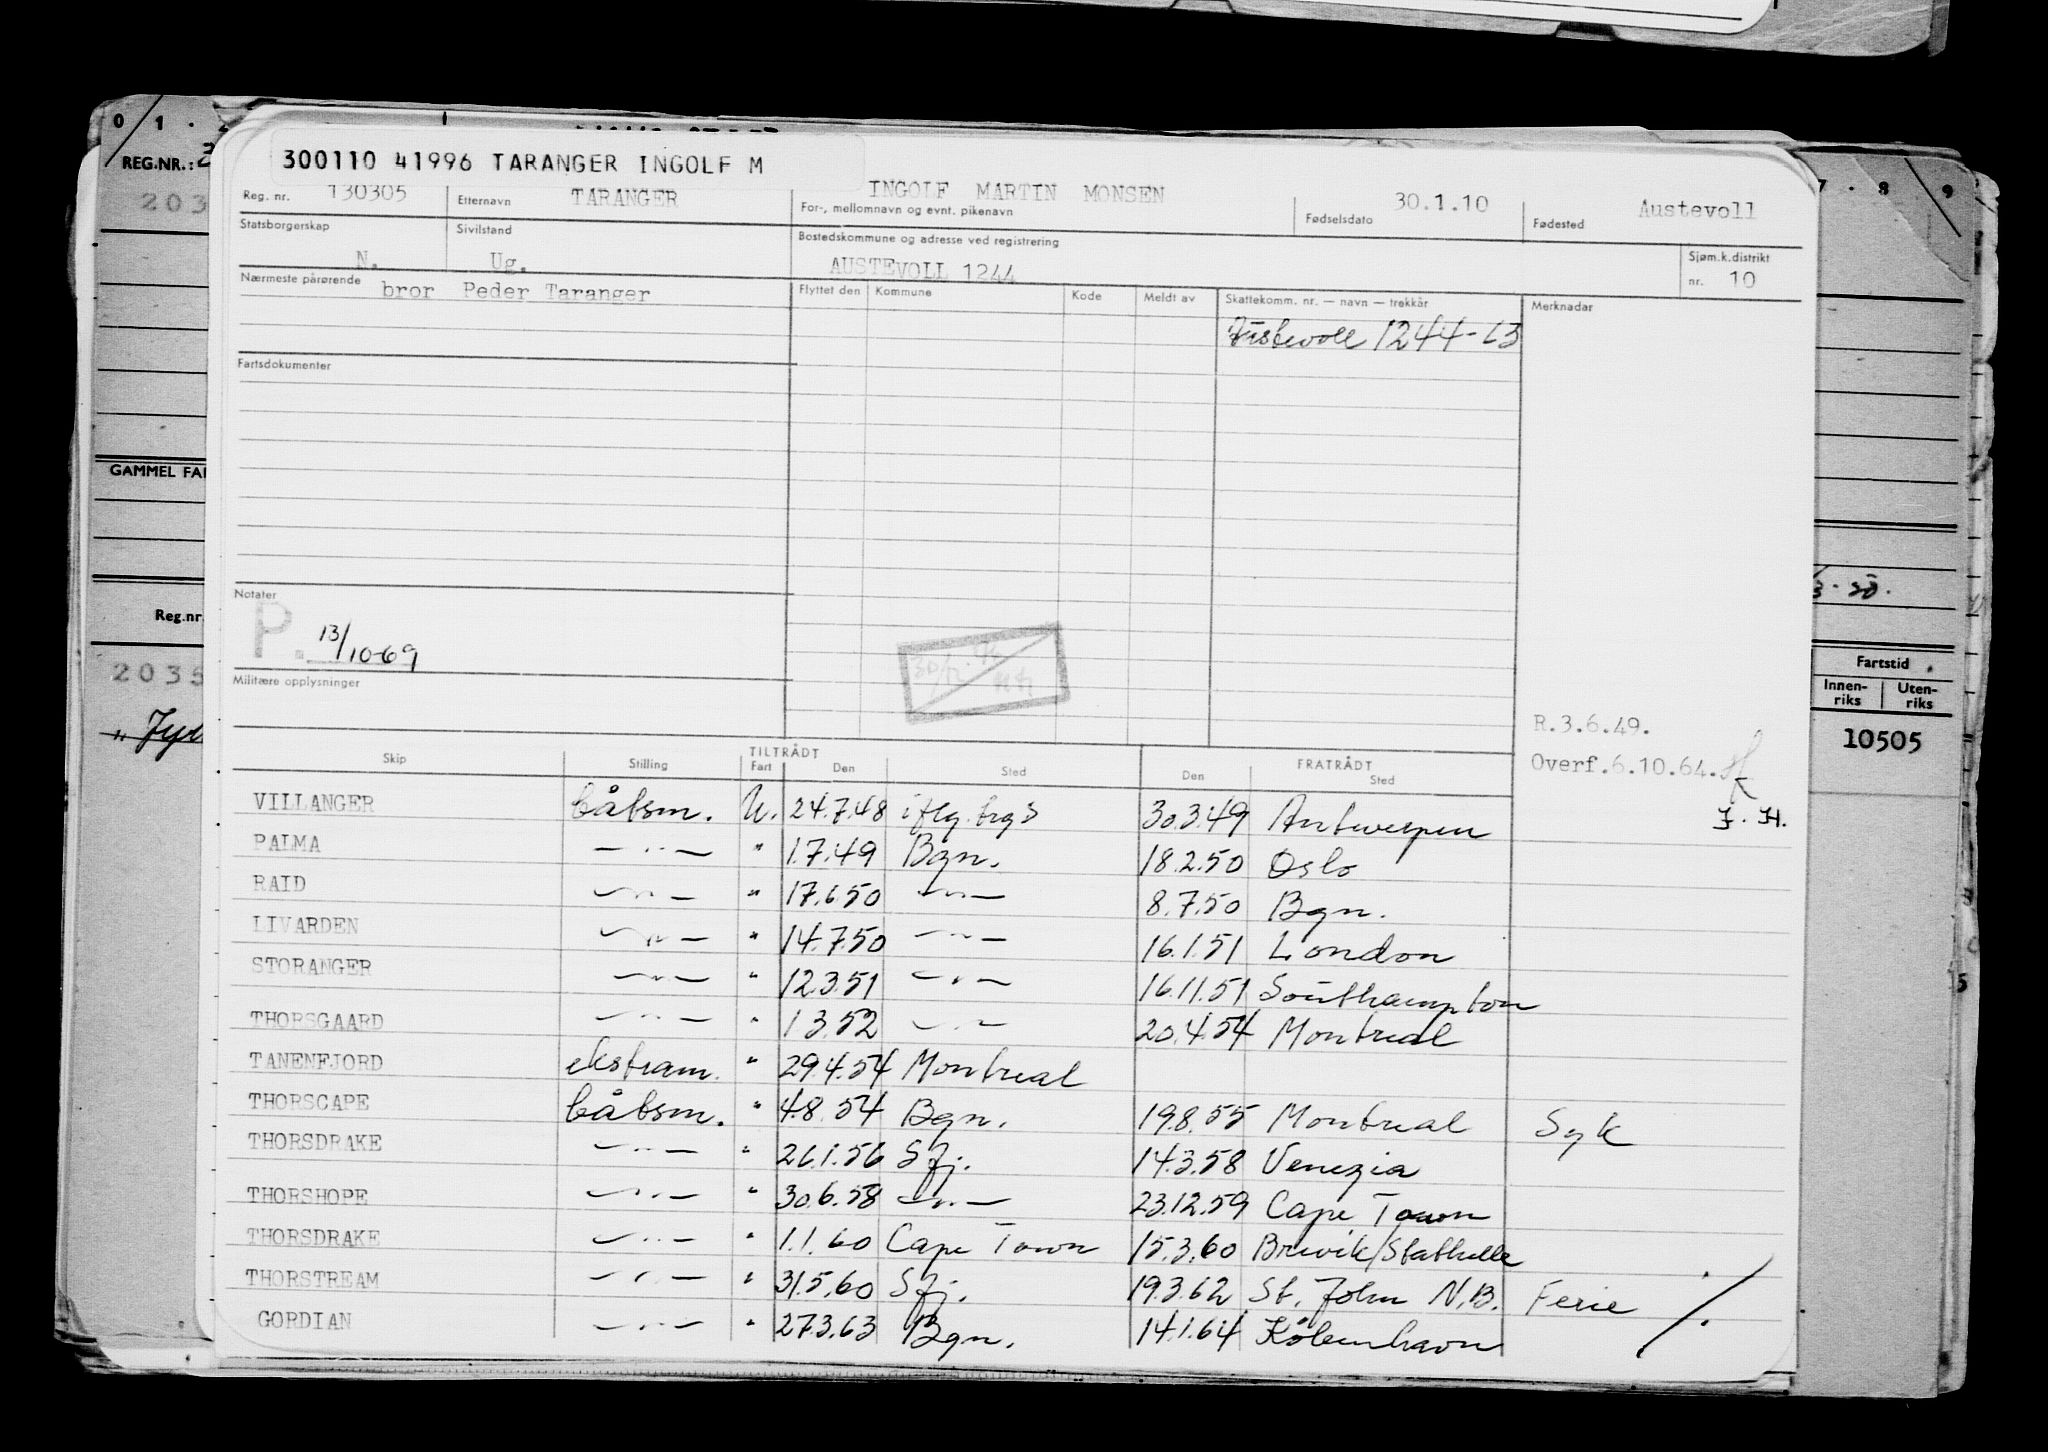 0 1 .
REG.NR.:
203
300110 41996 TARANGER INGOLF M
Reg. nr. 130305 Etternavn TARANGER INGOLF MARTIN MONSEN For-, mellomnavn og evnt. pikenavn Fødselsdato 30.1.10 Fødested Austevoll
7 . 8 9
Statsborgerskap N. Sivilstand Ug. Bostedskommune og adresse ved registrering AUSTEVOLL 1244 Sjøm.k.distrikt nr. 10
Nærmeste pårørende bror Peder Taranger Flyttet den Kommune Kode Meldt av Skattekomm. nr. — navn — trekkår Merknadar
Austevoll 1244-63
Fartsdokumenter
GAMMEL FA
Notater
P. 13/10-69
Reg.nr.
2035
Militære opplysninger
Fartstid
Innen-riks Uten-riks
10505
R.3.6.49.
Overf.6.10.64.
J. H.
TILTRÅDT FRATRÅDT
Skip Stilling Fart Den Sted Den Sted
VILLANGER båtsm. U. 24.7.48 iflg. brg3 30.3.49 Antwerpen
PALMA —"— " 1.7.49 Bgn. 18.2.50 Oslo
RAID —"— " 17.6.50 —"— 8.7.50 Bgn.
LIVARDEN —"— " 14.7.50 —"— 16.1.51 London
STORANGER —"— " 12.3.51 —"— 16.11.51 Southampton
THORSGAARD —"— " 1.3.52 —"— 20.4.54 Montreal
TANENFJORD ekstram. " 29.4.54 Montreal
THORSCAPE båtsm. " 4.8.54 Bgn. 19.8.55 Montreal Syk
THORSDRAKE —"— " 26.1.56 Sfj. 14.3.58 Venezia
THORSHOPE —"— " 30.6.58 —"— 23.12.59 Cape Town
THORSDRAKE —"— " 1.1.60 Cape Town 15.3.60 Brevik/Stathelle
THORSTREAM —"— " 31.5.60 Sfj. 19.3.62 St. John N.B. Ferie ./.
GORDIAN —"— " 27.3.63 Bgn. 14.1.64 København